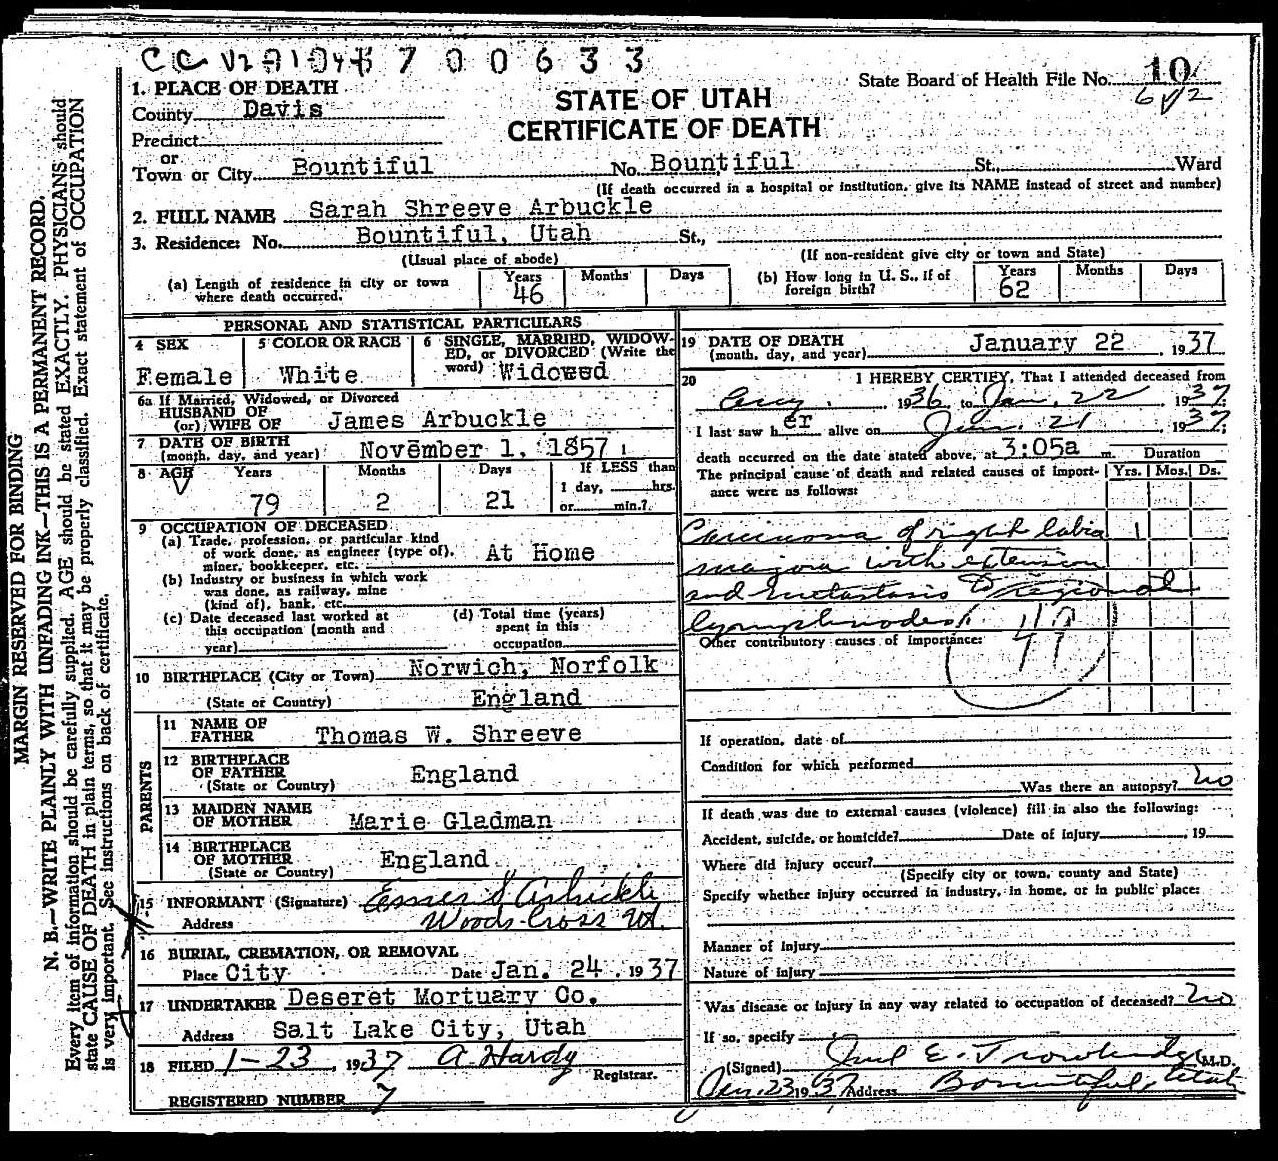 7 0 0 6 3 3
State Board of Health File No. 10
612
STATE OF UTAH
CERTIFICATE OF DEATH
1. PLACE OF DEATH
County Davis
Precinct
or
Town or City Bountiful No. Bountiful St., Ward
(If death occurred in a hospital or institution, give its NAME instead of street and number)
2. FULL NAME Sarah Shreeve Arbuckle
3. Residence: No. Bountiful, Utah St.,
(Usual place of abode) (If non-resident give city or town and State)
(a) Length of residence in city or town where death occurred. Years 46 Months Days
(b) How long in U. S., if of foreign birth? Years 62 Months Days
PERSONAL AND STATISTICAL PARTICULARS
4 SEX Female
5 COLOR OR RACE White
6 SINGLE, MARRIED, WIDOWED, or DIVORCED (Write the word) Widowed
6a If Married, Widowed, or Divorced
HUSBAND OF
(or) WIFE OF James Arbuckle
7 DATE OF BIRTH
(month, day, and year) November 1, 1857
8 AGE Years 79 Months 2 Days 21 If LESS than 1 day, hrs. or min.?
9 OCCUPATION OF DECEASED
(a) Trade, profession, or particular kind of work done, as engineer (type of), miner, bookkeeper, etc. At Home
(b) Industry or business in which work was done, as railway, mine (kind of), bank, etc.
(c) Date deceased last worked at this occupation (month and year)
(d) Total time (years) spent in this occupation
10 BIRTHPLACE (City or Town) Norwich, Norfolk
(State or Country) England
PARENTS
11 NAME OF FATHER Thomas W. Shreeve
12 BIRTHPLACE OF FATHER
(State or Country) England
13 MAIDEN NAME OF MOTHER Marie Gladman
14 BIRTHPLACE OF MOTHER
(State or Country) England
15 INFORMANT (Signature) Arbuckle
Address Woods Cross Ut.
16 BURIAL, CREMATION, OR REMOVAL
Place City Date Jan. 24, 1937
17 UNDERTAKER Deseret Mortuary Co.
Address Salt Lake City, Utah
18 FILED 1-23, 1937 A. Hardy
Registrar.
REGISTERED NUMBER 7
19 DATE OF DEATH
(month, day, and year) January 22, 1937
20 I HEREBY CERTIFY, That I attended deceased from
1936 to Jan. 22 1937;
I last saw her alive on Jan. 21, 1937;
death occurred on the date stated above, at 3:05a m. Duration
The principal cause of death and related causes of importance were as follows: Yrs. Mos. Ds.
Carcinoma of right labia 1
majora with extension
and metastasis to regional
lymphnodes.
Other contributory causes of importance:
If operation, date of
Condition for which performed
Was there an autopsy? no
If death was due to external causes (violence) fill in also the following:
Accident, suicide, or homicide? Date of injury, 19
Where did injury occur?
(Specify city or town, county and State)
Specify whether injury occurred in industry, in home, or in public place:
Manner of Injury
Nature of injury
Was disease or injury in any way related to occupation of deceased? no
If so, specify
(Signed) E. Trowbridge M.D.
Jan. 23 1937 Address Bountiful, Utah
MARGIN RESERVED FOR BINDING
N. B.—WRITE PLAINLY WITH UNFADING INK—THIS IS A PERMANENT RECORD.
Every item of information should be carefully supplied. AGE should be stated EXACTLY. PHYSICIANS should
state CAUSE OF DEATH in plain terms, so that it may be properly classified. Exact statement of OCCUPATION
is very important. See instructions on back of certificate.